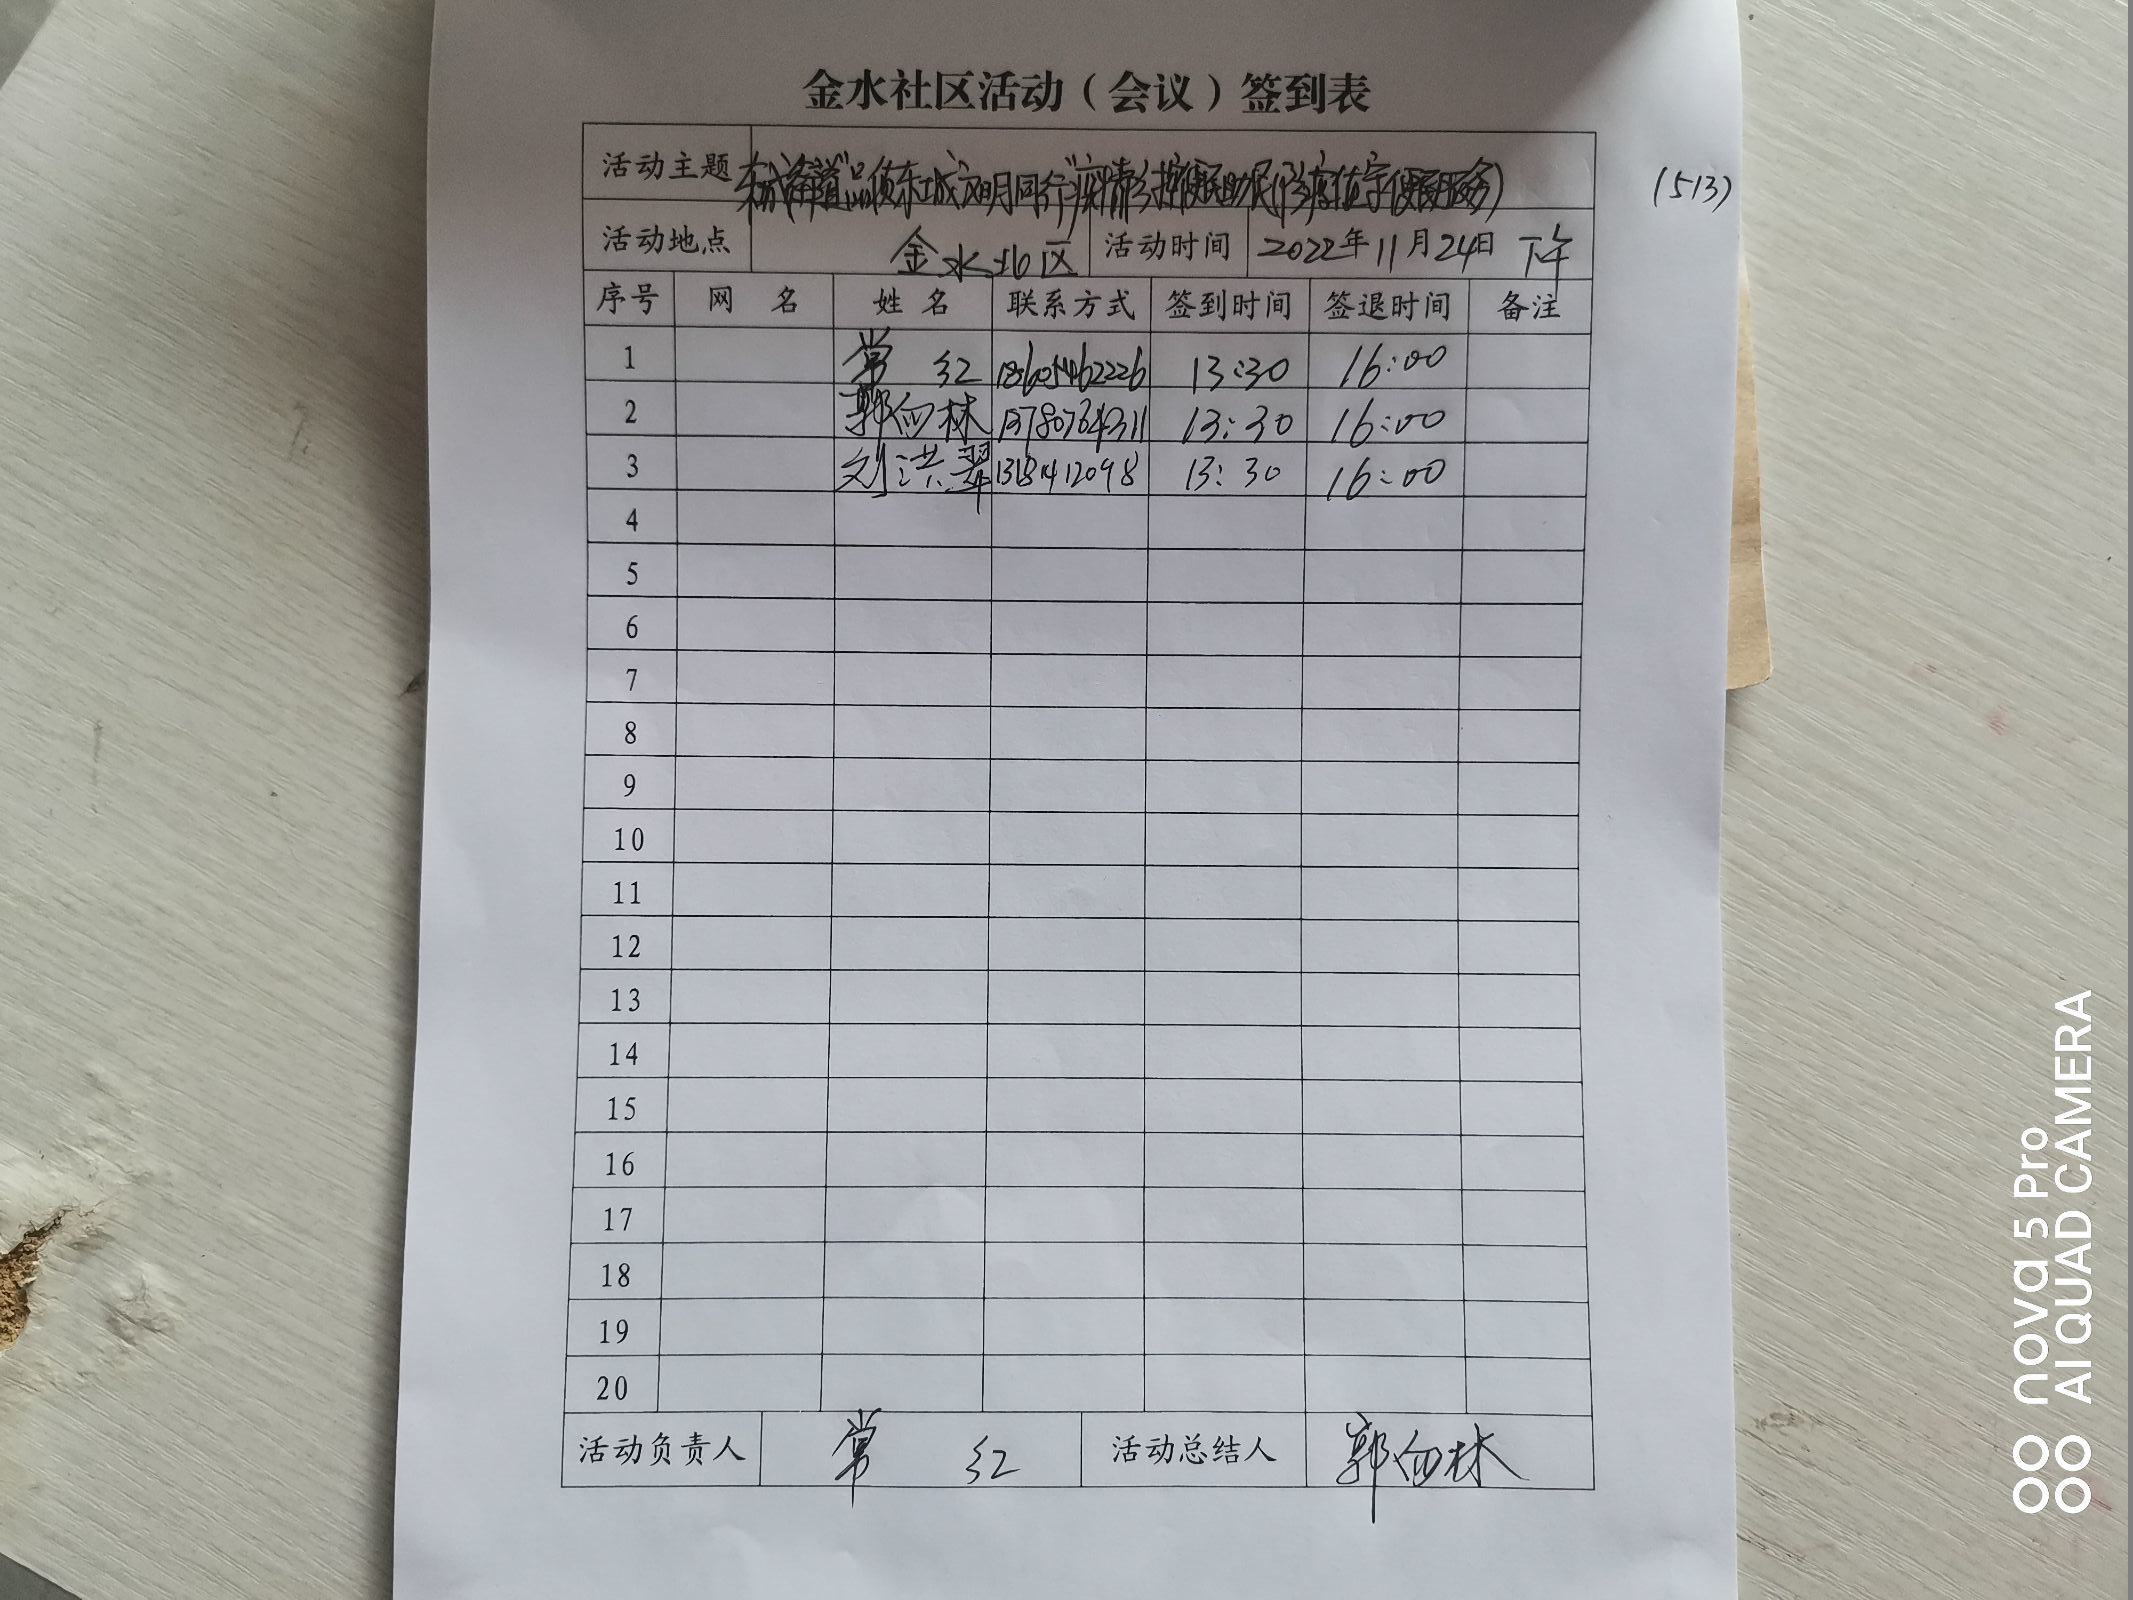 金水社区活动（会议）签到表
活动主题 东城街道"品质东城 文明同行"疫情 便民 服务)
(513)
活动地点 金水北区 活动时间 2022年11月24日 下午
序号 网 名 姓 名 联系方式 签到时间 签退时间 备注
1 常 红 13:30 16:00
2 郭向林 13780764311 13:30 16:00
3 刘洪翠 13:30 16:00
4
5
6
7
8
9
10
11
12
13
14
15
16
17
18
19
20
活动负责人 常 红 活动总结人 郭向林
nova 5 Pro
AI QUAD CAMERA